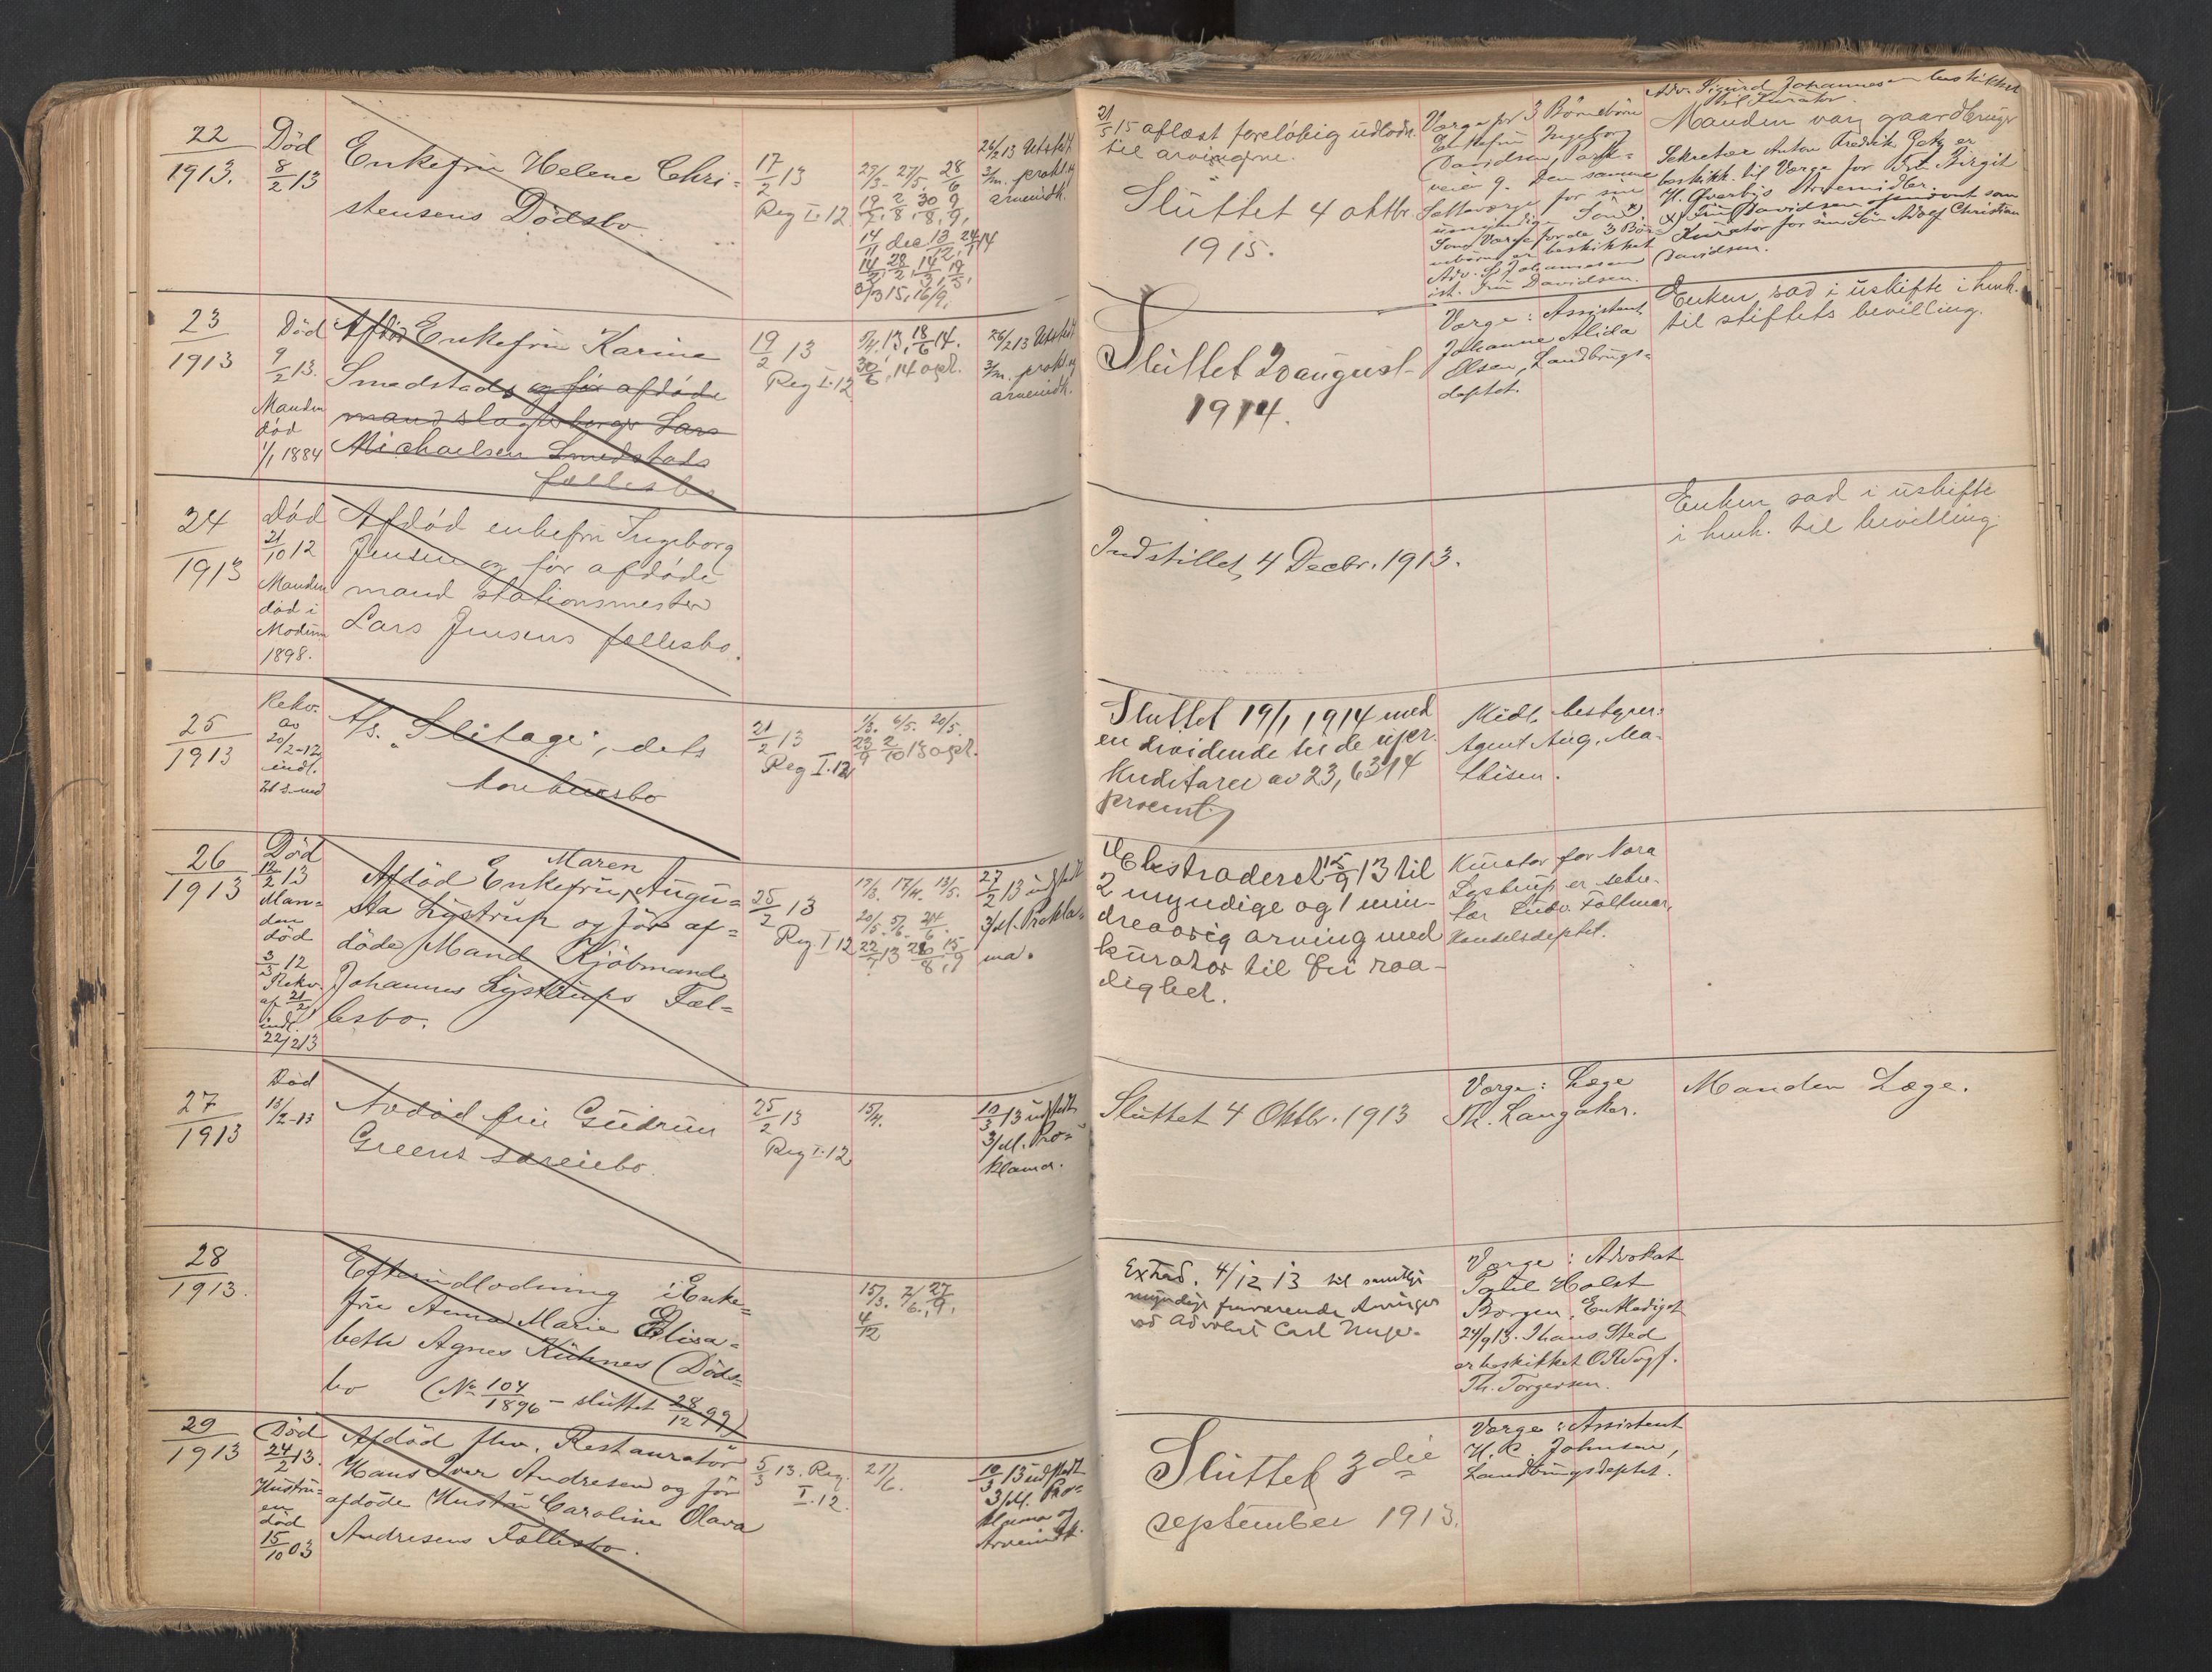 22
1913.
Død
8/2 13
Enkefru Helene Chri-
stensens Dødsbo
17/2 13
Reg I.12
29/3 - 27/5. 28/6
19/7, 2/8, 30/8, 9/9,
14/11 dec 13/12, 24/1 14
14/2, 28/2, 14/3, 19/5,
3/3 15, 16/9.
26/2 13 Utstedt
3/m. prokl. og
arveindk.
21/5 15 aflæst foreløbig udlodn.
til arvingerne.
Sluttet 4 oktbr.
1915.
Værge for 3 Børnebørn
Enkefru Ingeborg
Davidsen, Park-
veien 9. Den samme
Sætteværge for sin
umyndige Søn x)
Som Værge for de 3 Bør-
nebørn er beskikket
Adv. S. Johannesen
ist. Fru Davidsen.
Adv. Sigurd Johannesen beskikket
til Kurator.
Manden var gaardbruger
Sekretær Anton Fredrik Gotz er
beskikk. til Værge for Frk Birgit
H. Qverbys Arvemidler.
x) Fru Davidsen opnævnt som
Kurator for sin Søn Adolf Christian
Davidsen.
23
1913
Død
9/2 13.
Manden
død
1/1 1884
Afdød Enkefru Karine
Smedstads og før afdøde
mand slagterborger Lars
Michaelsen Smedstads
fællesbo
19/2 13
Reg I.12
5/4. 13, 18/6 14.
30/6, 14 opl.
26/2 13 Utstedt
3/m. prokl. og
arveindk.
Sluttet 20 august
1914.
Værge: Assistent
Johanne Alida
Olsen, Landbrugs-
deptet.
Enken sad i uskifte i henh.
til stiftets bevilling.
24
1913
Død
21/10 12
Manden
død i
Modum
1898.
Afdød enkefru Ingeborg
Jensen og før afdøde
mand stationsmester
Lars Jensens fællesbo.
Indstillet 4 Decbr. 1913.
Enken sad i uskifte
i henh. til bevilling.
25
1913
Rekv.
av
20/2-13
indl.
A/s. "Slitage", dets
konkursbo
21/2 13
Reg I.12
1/3. 6/5. 20/5.
23/9 2/10 13 opl.
Sluttet 19/1 1914 med
en dividende til de upr.
kreditorer av 23,6314
procent
Midl. bestyrer:
Agent Aug. Ma-
thisen.
26
1913
Død
12/2 13
Man-
den
død
3/3 12
Rekv.
af 21/2
indl.
22/2 13
Maren
Afdød Enkefru Augu-
sta Lystrup og før af-
døde Mand Kjøbmand
Johannes Lystrups Fæl-
lesbo.
25/2 13
Reg. I 12
17/3. 17/4. 13/5.
20/5. 5/6. 24/6.
22/7 13 20/8, 15/9
27/2 13 udstedt
3/M. Prokla-
ma.
Ekstraderet 15/9 13 til
2 myndige og 1 min-
dreaarig arving med
kurator til fri raa-
dighet.
Kurator for Nora
Lystrup er sekre-
tær Ludv. Follmar,
Handelsdeptet.
27
1913
Død
13/2-13
Avdød fru Gudrun
Greens særeiebo.
25/2 13
Reg I.12
15/4.
10/3 13 udstedt
3/M. Pro-
klama.
Sluttet 4 Oktbr. 1913
Værge: Læge
Th. Langaker.
Manden Læge.
28
1913.
Efterudlodning i Enke-
fru Anna Marie Elisa-
beth Agnes Kühnes (Døds-
bo (No 104/1896 - sluttet 28/12 99)
15/3. 7/6. 27/9.
4/12
Extrad. 4/12 13 til samtlige
myndige fraværende Arvinger
ved Advokat Carl
Værge: Advokat
Poul Holst
Borgen, Entlediget
24/9 13. I hans Sted
er beskikket ORSagf.
Th. Torgersen.
29
1913
Død
24/2 13.
Hustru-
en
død
15/10 03
Afdød fhv. Restauratør
Hans Iver Andresen og før
afdøde Hustru Caroline Olava
Andresens Fællesbo.
5/3 13. Reg.
I.12.
21/6.
10/3 13 udstedt
3/M. Pro-
klama og
Arveindk.
Sluttet 3die
september 1913.
Værge: Assistent
H. R. Johnsen,
Landbrugsdeptet.